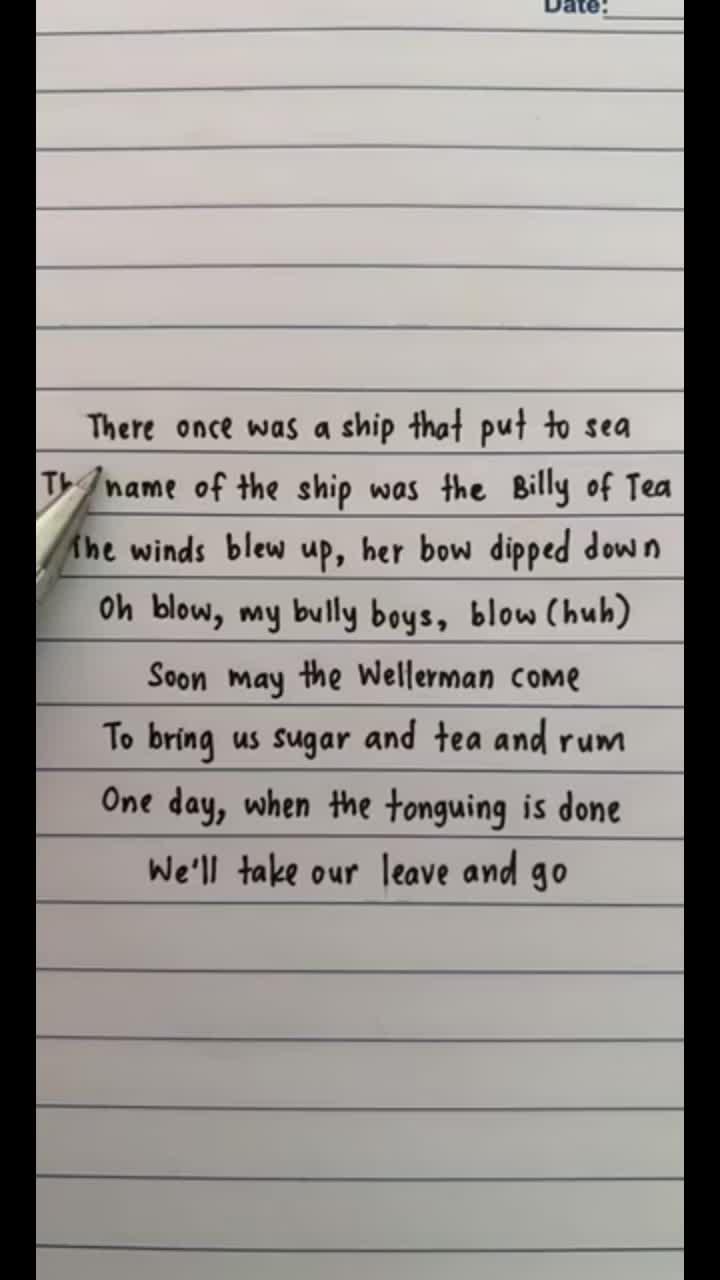 Date:
There once was a ship that put to sea
The name of the ship was the Billy of Tea
The winds blew up, her bow dipped down
Oh blow, my bully boys, blow (huh)
Soon may the Wellerman come
To bring us sugar and tea and rum
One day, when the tonguing is done
We'll take our leave and go